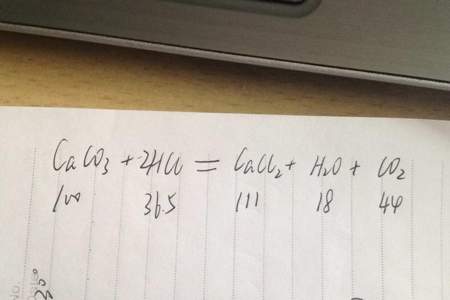 CaCO₃ + 2HCl = CaCl₂ + H₂O + CO₂
100 36.5 111 18 44